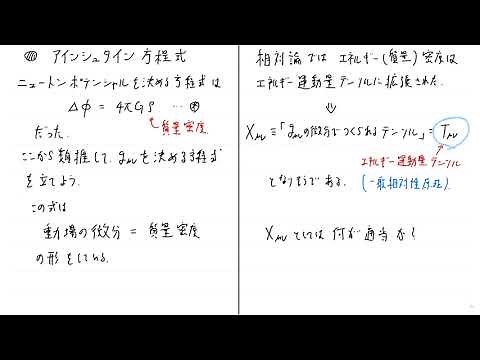 アインシュタイン方程式
ニュートンポテンシャルを決める方程式は
Δφ = 4πGρ … ㊉
質量密度
だった.
ここから類推して、gμνを決める方程式
を立てよう.
この式は
重力場の微分 = 質量密度
の形をしている.
相対論では エネルギー(質量)密度は
エネルギー運動量テンソルに拡張された.
⇓
Xμν ≡「gμνの微分でつくられるテンソル」= Tμν
エネルギー運動量テンソル
となりそうである. (一般相対性原理)
Xμνとしては 何が適当か?